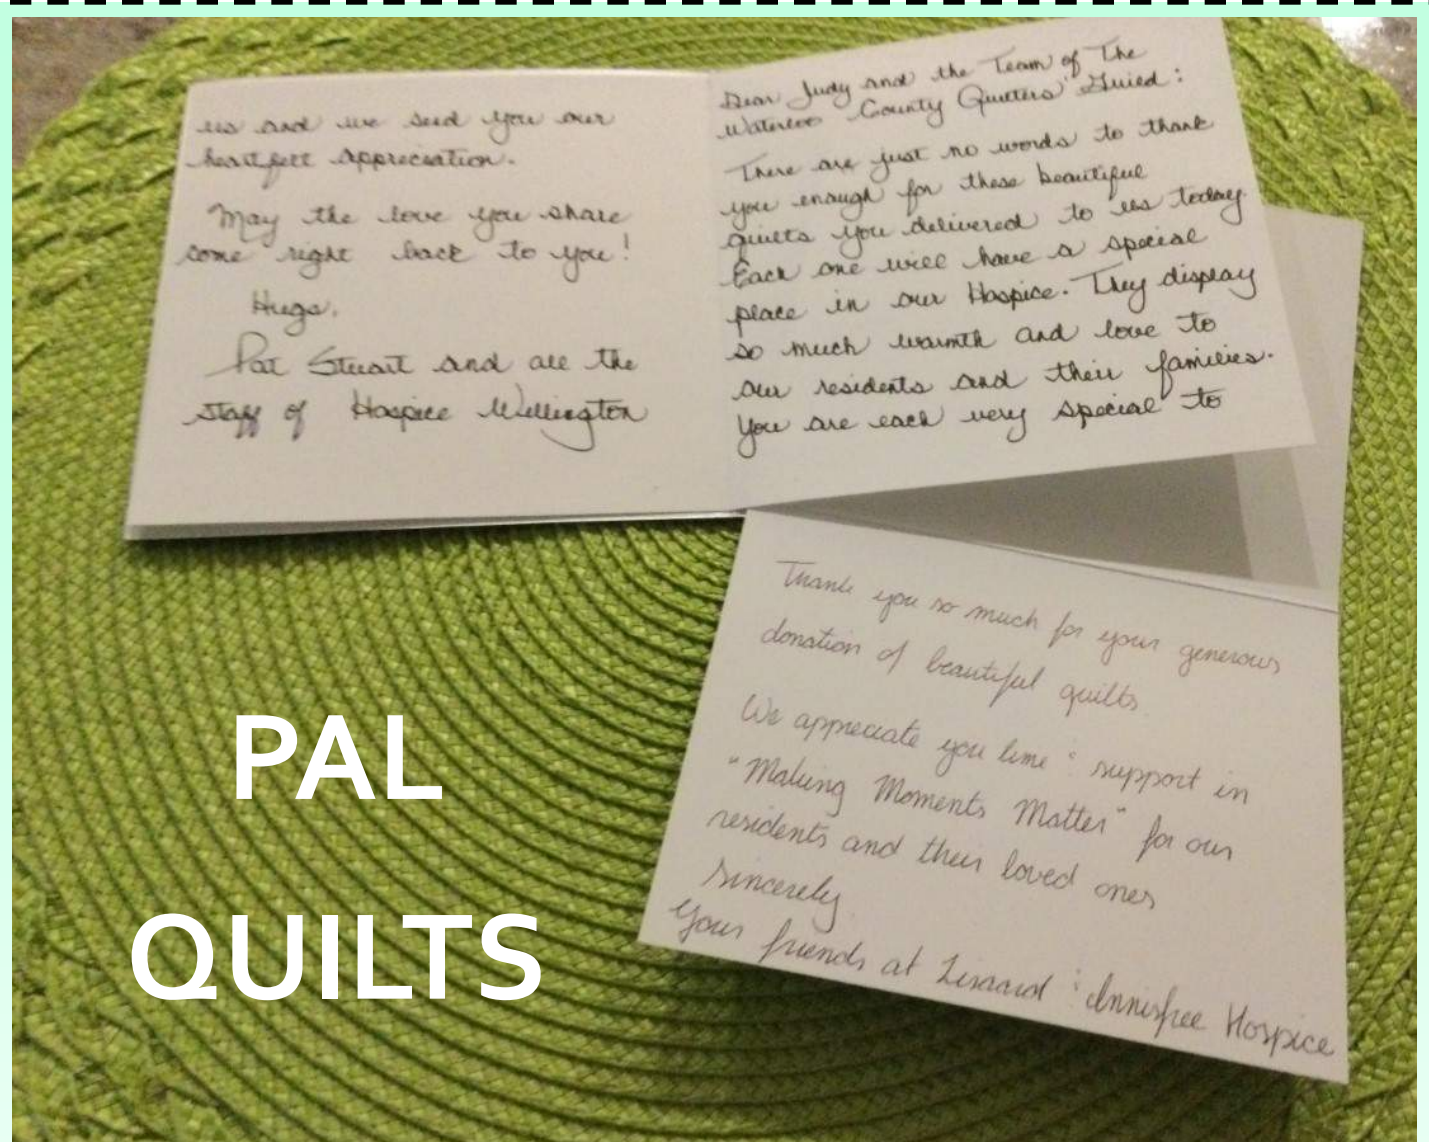 us and we send you our
heartfelt appreciation.
May the love you share
come right back to you!
Hugs,
Pat Stuart and all the
staff of Hospice Wellington
Dear Judy and the Team of The
Waterloo County Quilters' Guild:
There are just no words to thank
you enough for these beautiful
quilts you delivered to us today.
Each one will have a special
place in our Hospice. They display
so much warmth and love to
our residents and their families.
You are each very special to
Thank you so much for your generous
donation of beautiful quilts
We appreciate you time & support in
"Making Moments Matter" for our
residents and their loved ones
Sincerely
Your friends at Lisaard & Innisfree Hospice
PAL
QUILTS